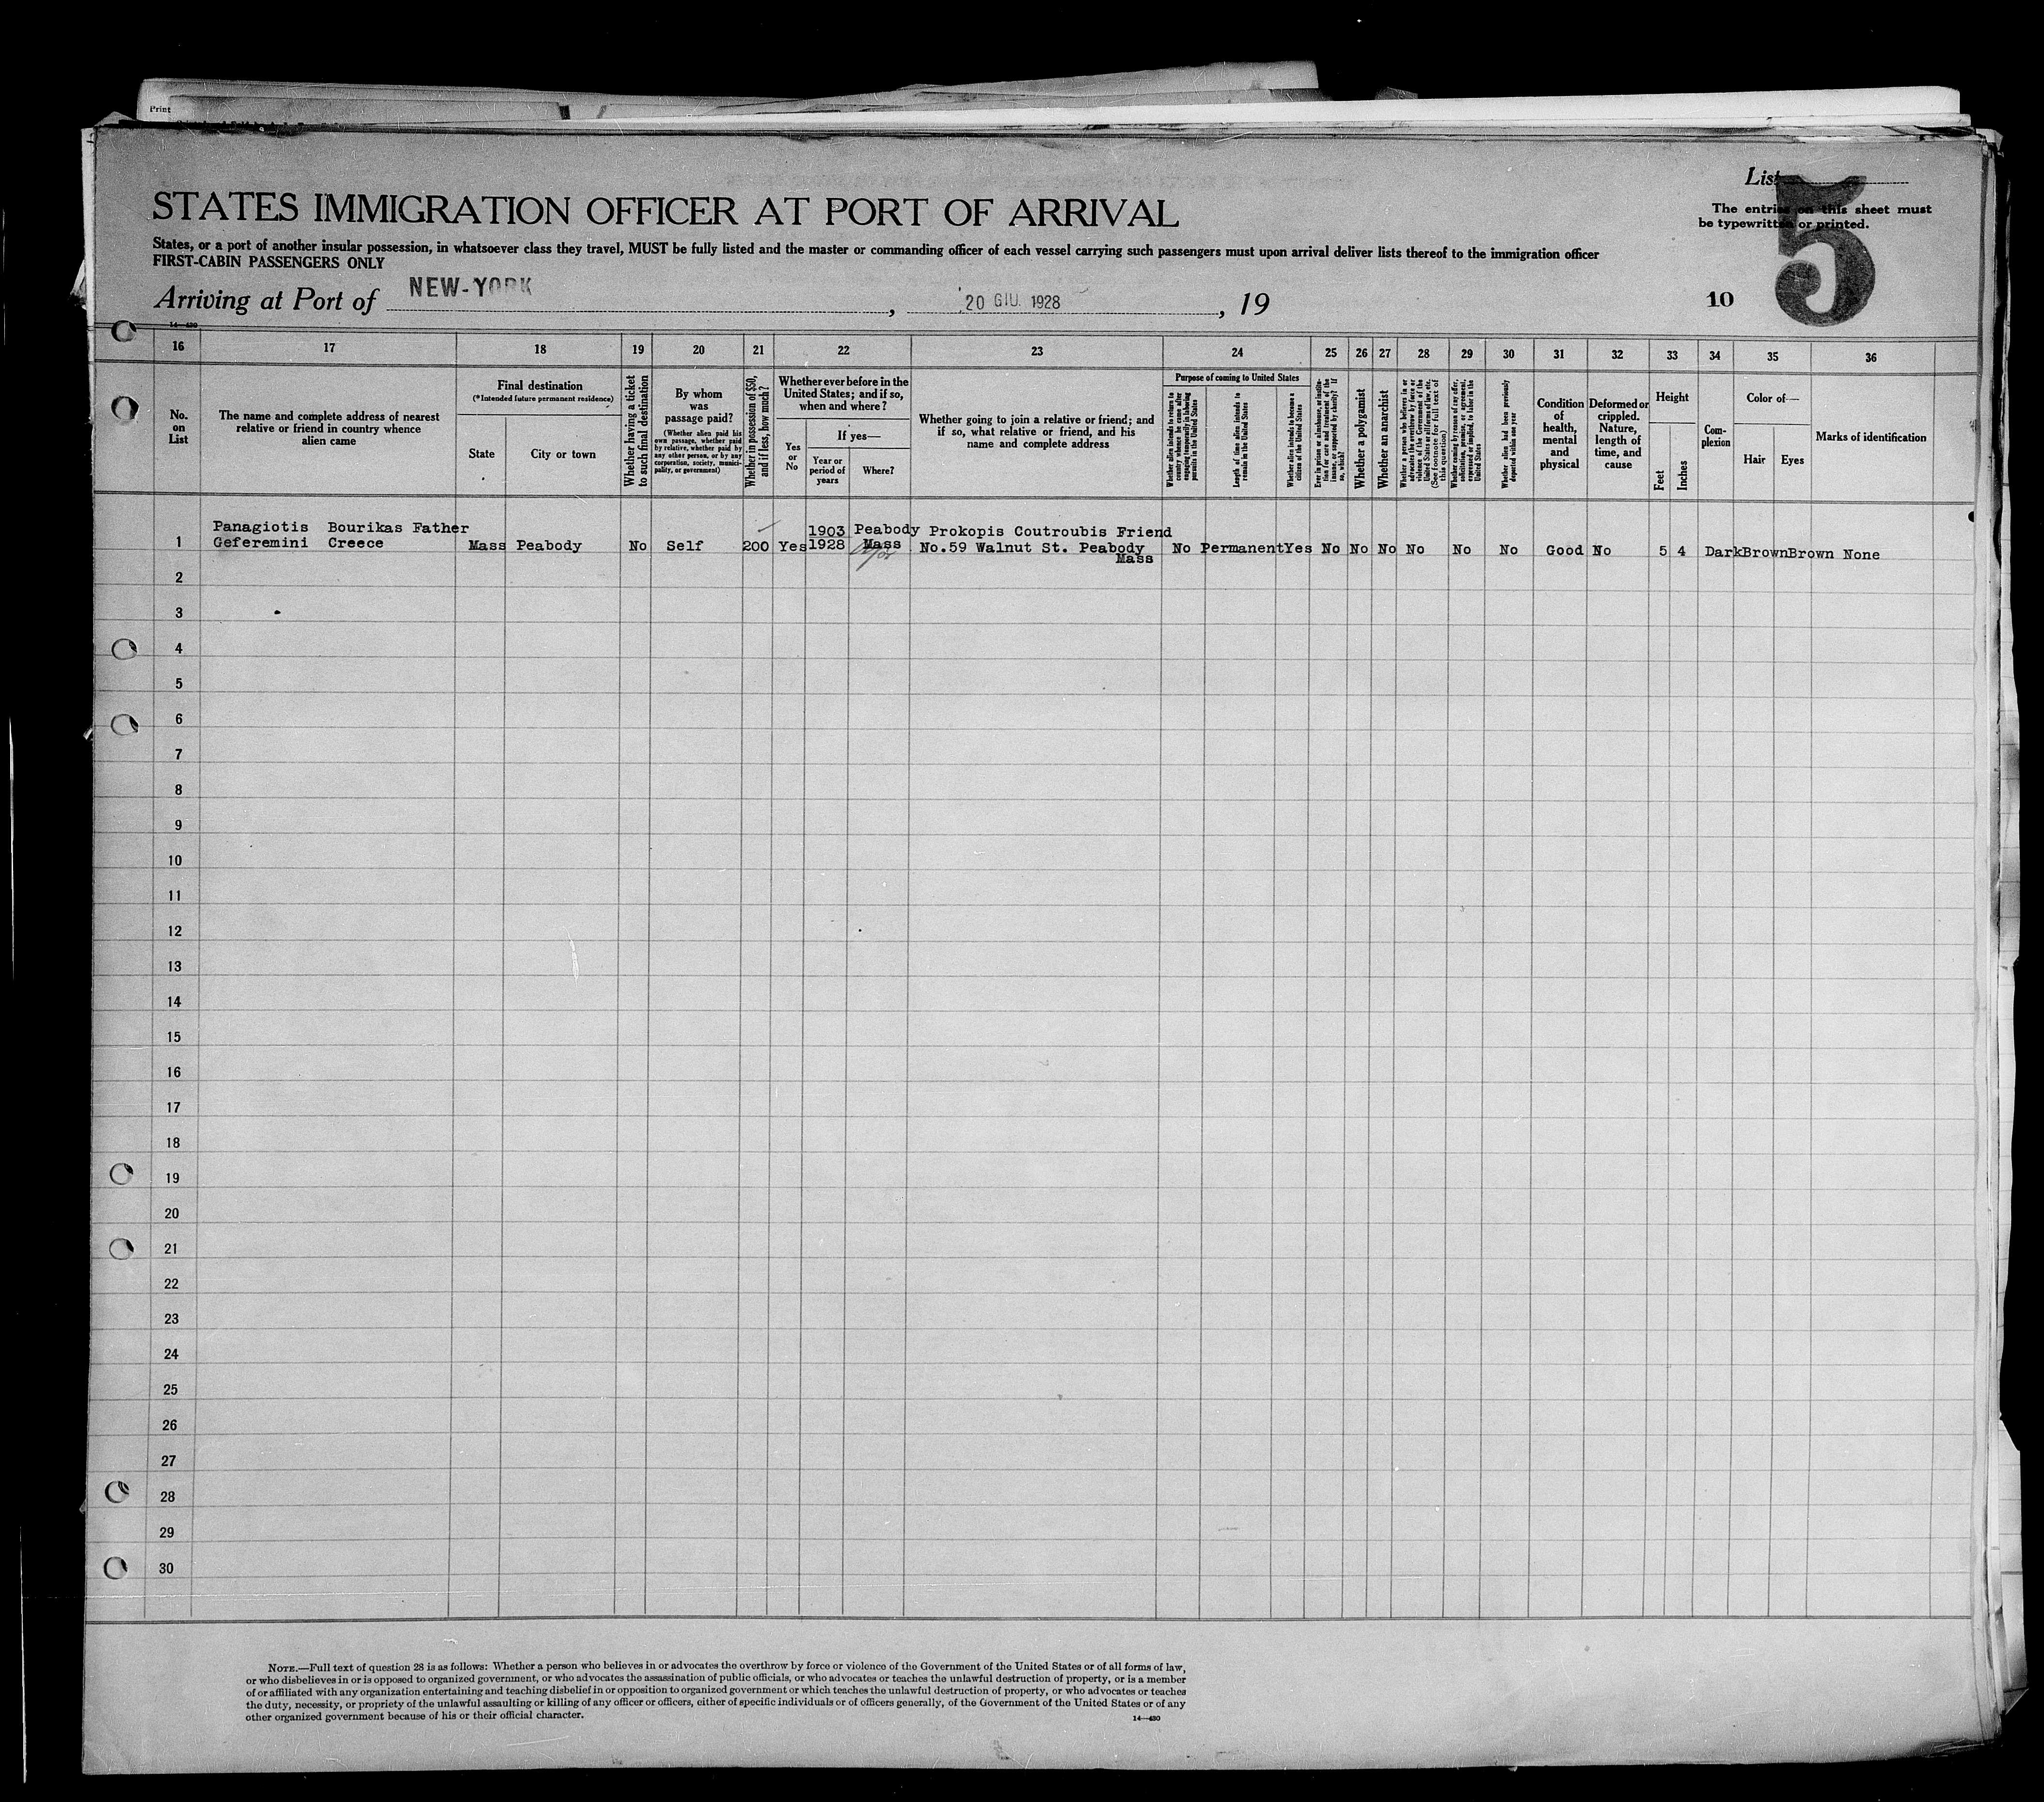 Print
List
5
STATES IMMIGRATION OFFICER AT PORT OF ARRIVAL
The entries on this sheet must
be typewritten or printed.
States, or a port of another insular possession, in whatsoever class they travel, MUST be fully listed and the master or commanding officer of each vessel carrying such passengers must upon arrival deliver lists thereof to the immigration officer
FIRST-CABIN PASSENGERS ONLY
Arriving at Port of NEW-YORK, 20 GIU. 1928, 19
10
14—430
16 17 18 19 20 21 22 23 24 25 26 27 28 29 30 31 32 33 34 35 36
No.
on
List
The name and complete address of nearest
relative or friend in country whence
alien came
Final destination
(*Intended future permanent residence)
State
City or town
Whether having a ticket
to such final destination
By whom
was
passage paid?
(Whether alien paid his
own passage, whether paid
by relative, whether paid by
any other person, or by any
corporation, society, munici-
pality, or government)
Whether in possession of $50,
and if less, how much?
Whether ever before in the
United States; and if so,
when and where?
Yes
or
No
If yes—
Year or
period of
years
Where?
Whether going to join a relative or friend; and
if so, what relative or friend, and his
name and complete address
Purpose of coming to United States
Whether alien intends to return to
country whence he came after
engaging temporarily in laboring
pursuits in the United States
Length of time alien intends to
remain in the United States
Whether alien intends to become a
citizen of the United States
Ever in prison or almshouse, or institu-
tion for care and treatment of the
insane, or supported by charity? If
so, which?
Whether a polygamist
Whether an anarchist
Whether a person who believes in or
advocates the overthrow by force or
violence of the Government of the
United States or all forms of law, etc.
(See footnote for full text of
this question)
Whether coming by reason of any offer,
solicitation, promise, or agreement,
expressed or implied, to labor in the
United States
Whether alien had been previously
deported within one year
Condition
of
health,
mental
and
physical
Deformed or
crippled.
Nature,
length of
time, and
cause
Height
Feet
Inches
Com-
plexion
Color of—
Hair
Eyes
Marks of identification
Panagiotis Bourikas Father 1903 Peabody Prokopis Coutroubis Friend
1 Geferemini Creece Mass Peabody No Self 200 Yes 1928 Mass No.59 Walnut St. Peabody No Permanent Yes No No No No No No Good No 5 4 Dark Brown Brown None
Mass
2
3
4
5
6
7
8
9
10
11
12
13
14
15
16
17
18
19
20
21
22
23
24
25
26
27
28
29
30
NOTE.—Full text of question 28 is as follows: Whether a person who believes in or advocates the overthrow by force or violence of the Government of the United States or of all forms of law,
or who disbelieves in or is opposed to organized government, or who advocates the assassination of public officials, or who advocates or teaches the unlawful destruction of property, or is a member
of or affiliated with any organization entertaining and teaching disbelief in or opposition to organized government or which teaches the unlawful destruction of property, or who advocates or teaches
the duty, necessity, or propriety of the unlawful assaulting or killing of any officer or officers, either of specific individuals or of officers generally, of the Government of the United States or of any
other organized government because of his or their official character.
14—430